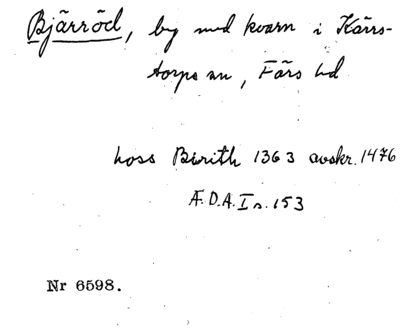 Bjärröd, by med kvarn i Kärrs-
torps sn, Färs hd
hoss Birith 1363 avskr. 1476
Æ.D.A. I s. 153
Nr 6598.